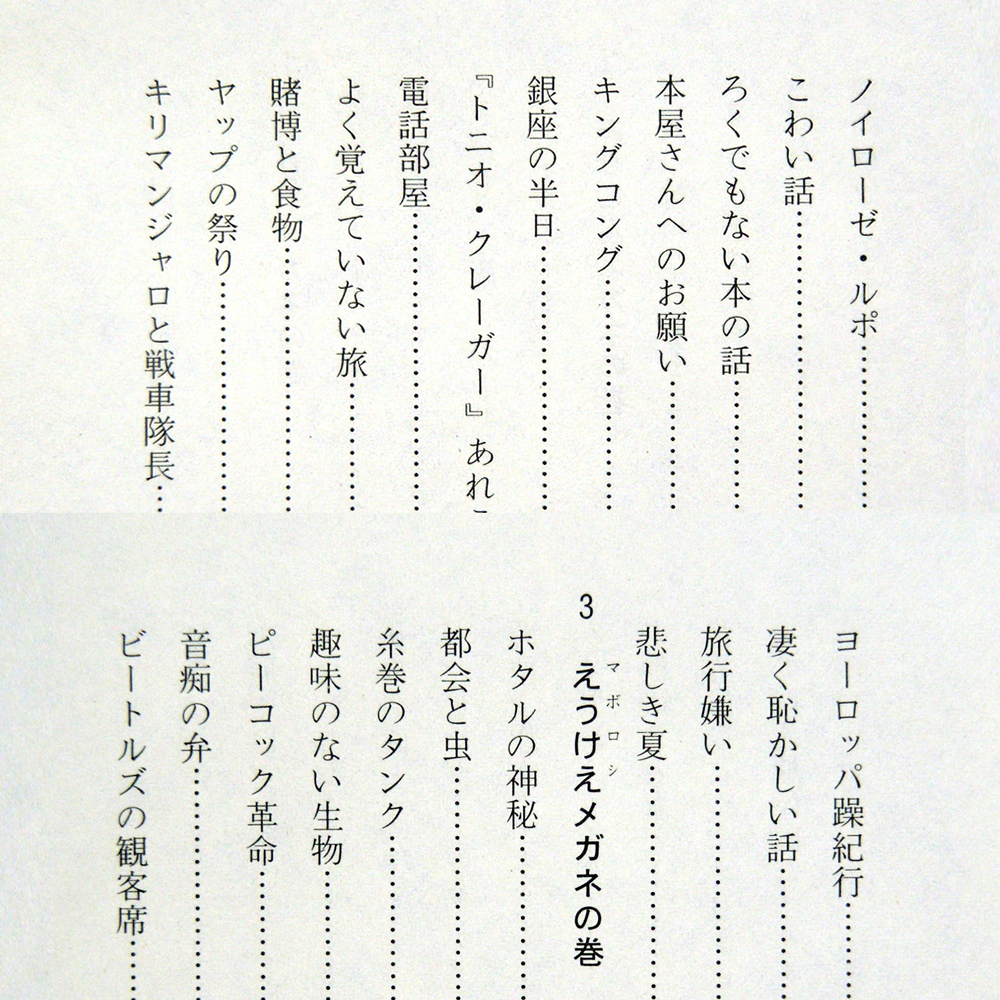 ノイローゼ・ルポ…………
こわい話…………
ろくでもない本の話…………
本屋さんへのお願い…………
キングコング…………
銀座の半日…………
『トニオ・クレーガー』あれ
電話部屋…………
よく覚えていない旅…………
賭博と食物…………
ヤップの祭り…………
キリマンジャロと戦車隊長…
ヨーロッパ躁紀行…………
凄く恥かしい話…………
旅行嫌い…………
悲しき夏…………
マボロシ
3 えうけえメガネの巻
ホタルの神秘…………
都会と虫…………
糸巻のタンク…………
趣味のない生物…………
ピーコック革命…………
音痴の弁…………
ビートルズの観客席…………